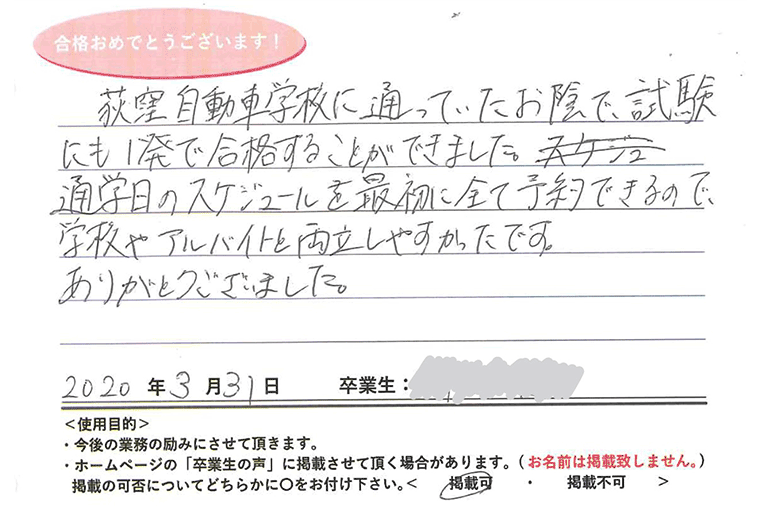 合格おめでとうございます!
荻窪自動車学校に通っていたお陰で、試験
にも1発で合格することができました。スケジュ
通学日のスケジュールを最初に全て予約できるので、
学校やアルバイトと両立しやすかったです。
ありがとうございました。
2020 年 3 月 31 日 卒業生:
<使用目的>
・今後の業務の励みにさせて頂きます。
・ホームページの「卒業生の声」に掲載させて頂く場合があります。(お名前は掲載致しません。)
掲載の可否についてどちらかに〇をお付け下さい。< 掲載可 ・ 掲載不可 >